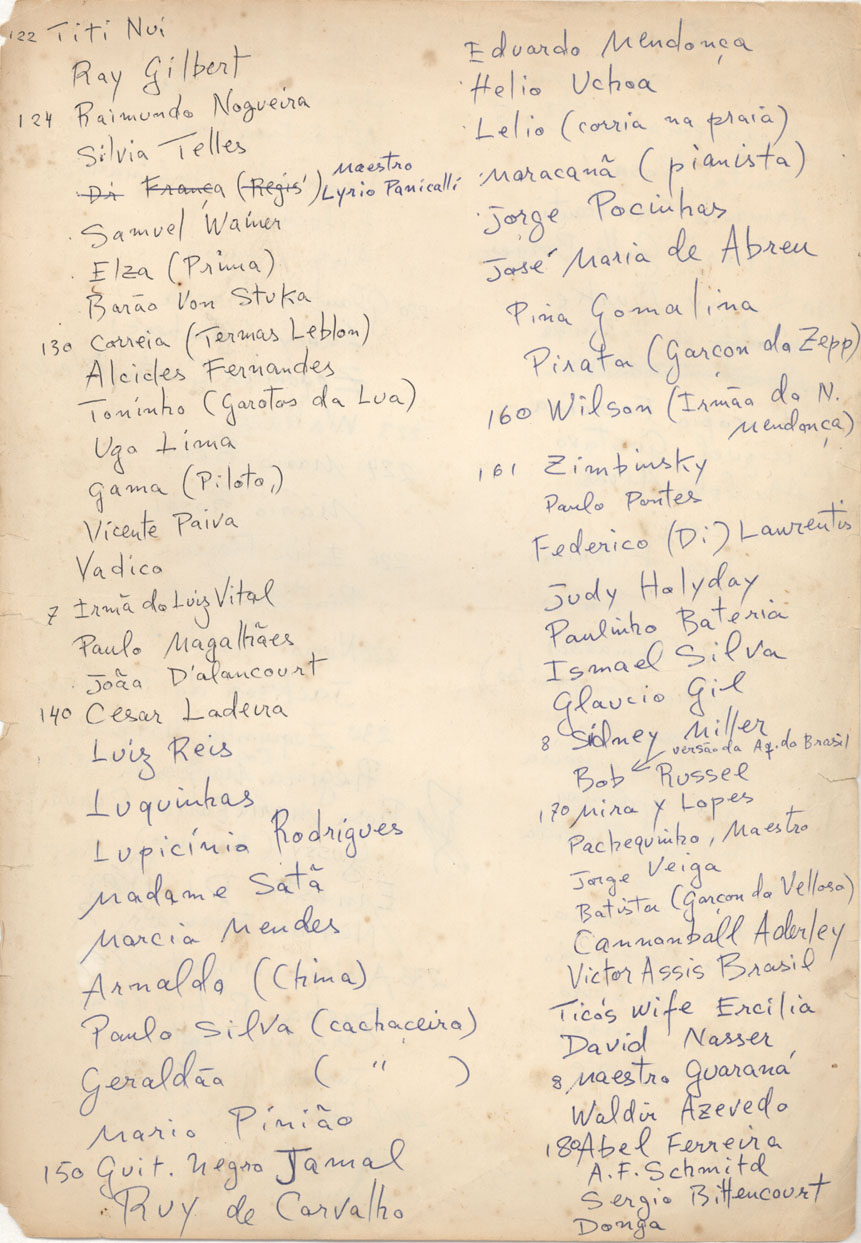 122 Titi Nui
Ray Gilbert
124 Raimundo Nogueira
Silvia Telles
Di França (Regis) Maestro Lyrio Panicalli
Samuel Wainer
Elza (Prima)
Barão Von Stuka
130 Correia (Termas Leblon)
Alcides Fernandes
Toninho (Garotos da Lua)
Ugo Lima
Gama (Piloto,)
Vicente Paiva
Vadico
7 Irmã do Luiz Vital
Paulo Magalhães
João D'alancourt
140 Cesar Ladeira
Luiz Reis
Luquinhas
Lupicínio Rodrigues
Madame Satã
Marcia Mendes
Arnaldo (China)
Paulo Silva (cachaceiro)
Geraldão ( " )
Mario Pinião
150 Guit. Negro Jamal
Ruy de Carvalho
Eduardo Mendonça
Helio Uchoa
Lelio (corria na praia)
Maracanã (pianista)
Jorge Pocinhas
José Maria de Abreu
Pina Gomalina
Pirata (Garçon do Zepp)
160 Wilson (Irmão do N.
Mendonça)
161 Zimbinsky
Paulo Pontes
Federico (Di) Laurentis
Judy Holyday
Paulinho Bateria
Ismael Silva
Glaucio Gil
8 Sidney Miller
versão da Aq. do Brasil
Bob Russel
170 Mira y Lopes
Pachequinho, Maestro
Jorge Veiga
Batista (Garçon do Velloso)
Cannonball Aderley
Victor Assis Brasil
Tico's wife Ercília
David Nasser
8 Maestro Guaraná
Waldir Azevedo
180 Abel Ferreira
A.F. Schmitd
Sergio Bittencourt
Donga